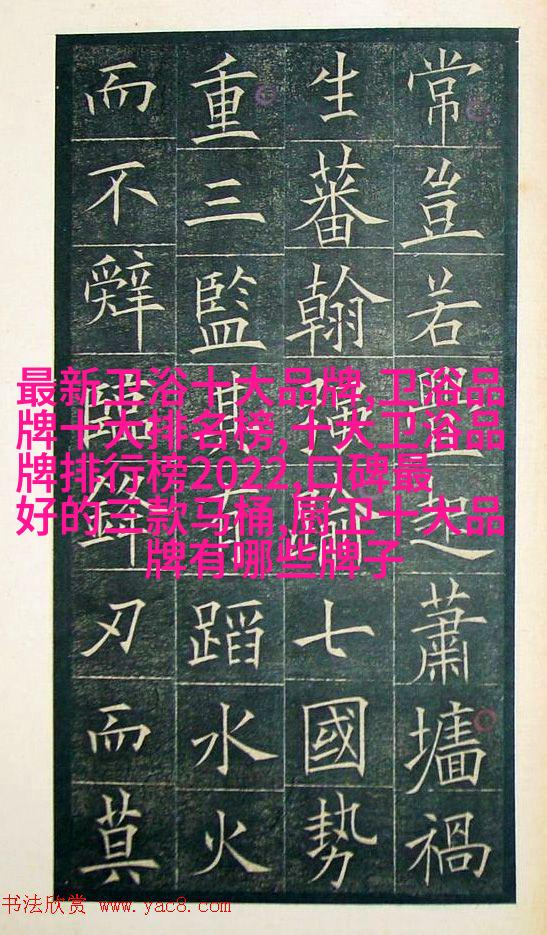 常豈若釁起蕭墻禍
生蕃翰強踰七國勢
重三監其有蹈水火
而不辤臨鋒刃而莫
最新卫浴十大品牌,卫浴品
牌十大排名榜,十大卫浴品
牌排行榜2022,口碑最
好的三款马桶,厨卫十大品
牌有哪些牌子
书法欣赏 www.yac8.com